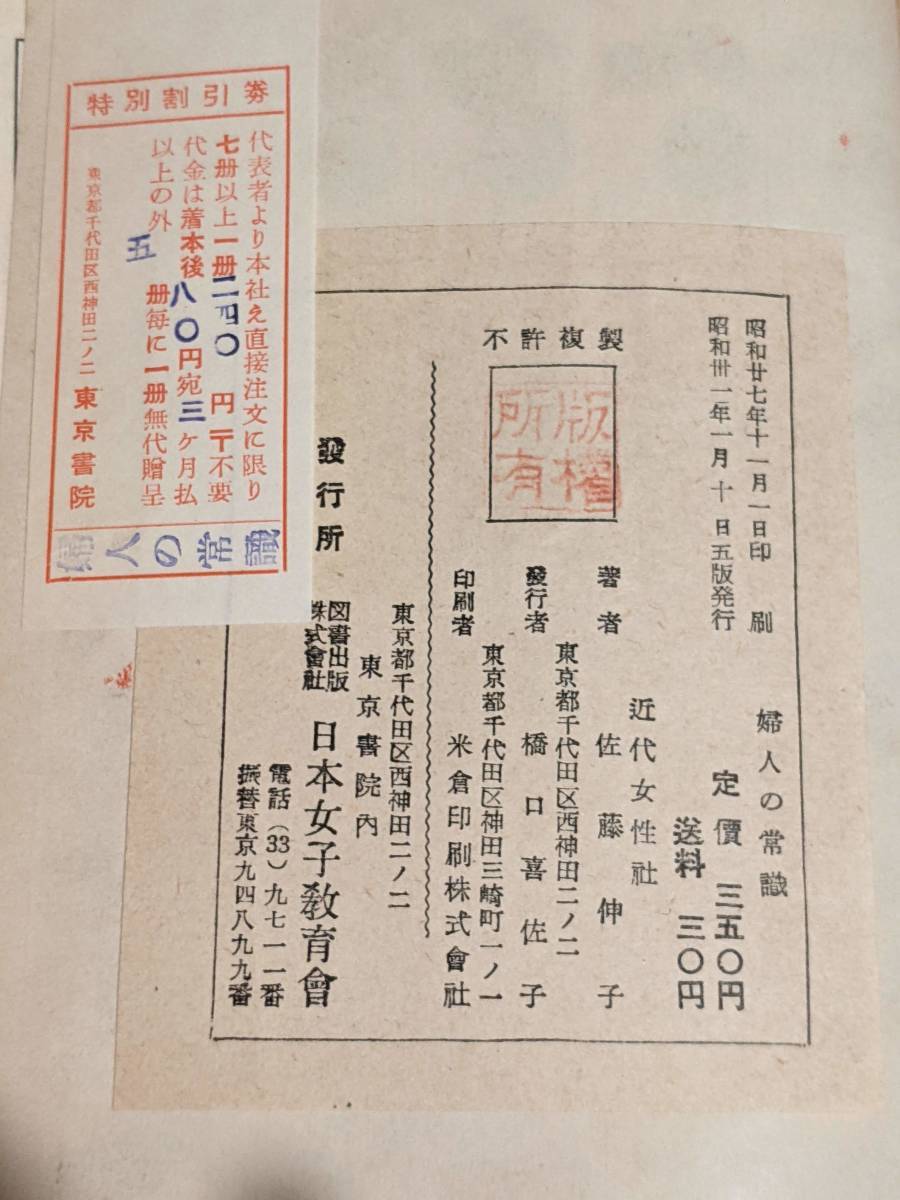 特別割引券
代表者より本社え直接注文に限り
七册以上一册二四〇円〒不要
代金は着本後八〇円宛三ケ月払
以上の外五册毎に一册無代贈呈
東京都千代田区西神田二ノ二 東京書院
婦人の常識
婦人の常識
定價 三五〇円
送料 三〇円
昭和廿七年十一月一日印刷
昭和卅一年一月十日五版発行
不許複製
版權所有
近代女性社
著者 佐藤伸子
東京都千代田区西神田二ノ二
發行者 橋口喜佐子
東京都千代田区神田三崎町一ノ一
印刷者 米倉印刷株式會社
東京都千代田区西神田二ノ二
東京書院内
發行所 図書出版株式會社 日本女子教育會
電話(33)九七一一番
振替東京九四八九九番